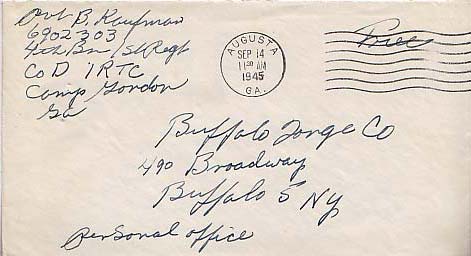 Pvt B. Kaufman
6902303
4th Bn / St Regt
Co D IRTC
Camp Gordon
Ga
AUGUSTA
SEP 14
11 30 AM
1945
GA.
Free
Buffalo Forge Co
490 Broadway
Buffalo 5 NY
personal office